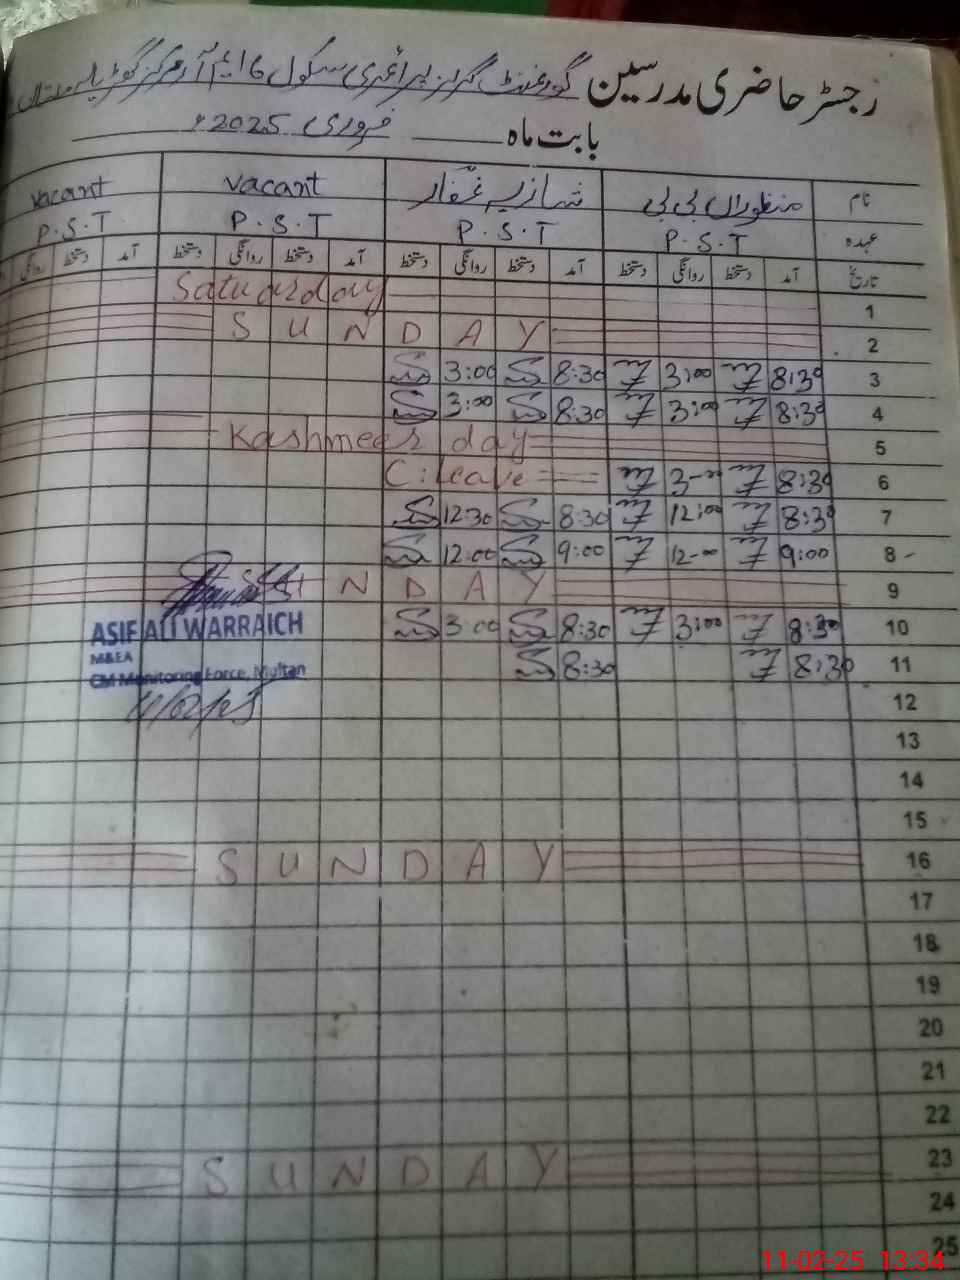 رجسٹر حاضری مدرسین گورنمنٹ گرلز پرائمری سکول 16 ایم آر مرکز
بابت ماہ فروری 2025ء
نام منظوراں بی بی شازیہ غفار vacant vacant
عہدہ P.S.T P.S.T P.S.T P.S.T
تاریخ آمد دستخط روانگی دستخط آمد دستخط روانگی دستخط آمد دستخط روانگی دستخط آمد دستخط روانگی
1 Saturday
2 SUNDAY
3 8:30 3:00 8:30 3:00
4 8:30 3:00 8:30 3:00
5 Kashmeer day
6 8:30 3-00 C.leave
7 8:30 12:00 8:30 12:30
8 9:00 12-00 9:00 12:00
9 SUNDAY
10 8:30 3:00 8:30 3:00
11 8:30 8:30
ASIF ALI WARRAICH
M&EA
CM Monitoring Force, Multan
11/02/25
12
13
14
15
16 SUNDAY
17
18
19
20
21
22
23 SUNDAY
24
25
11-02-25 13:34